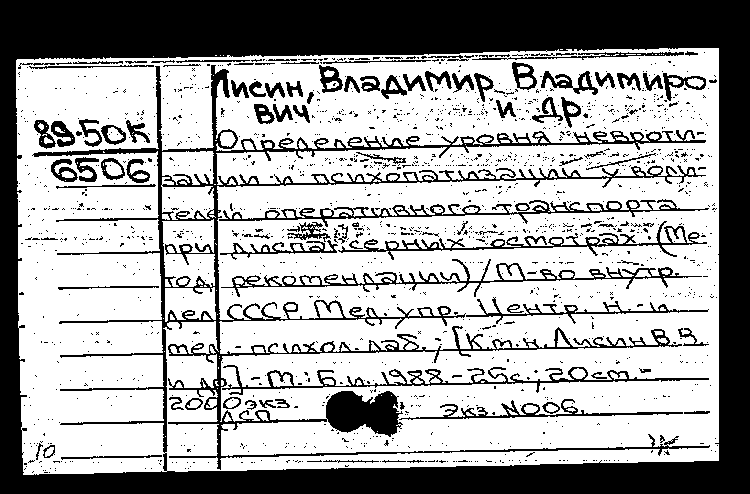 Лисин, Владимир Владимиро-
вич и др.
89-50К
6506
Определение уровня невроти-
зации и психопатизации у води-
телей оперативного транспорта
при диспансерных осмотрах: (Ме-
тод. рекомендации) / М-во внутр.
дел СССР. Мед. упр. Центр. н.-и.
мед.-психол. лаб.; [К.м.н. Лисин В.В.
и др.] - М.: Б.и., 1988. - 26с.; 20см. -
2000 экз.
ДСП экз. №006.
10